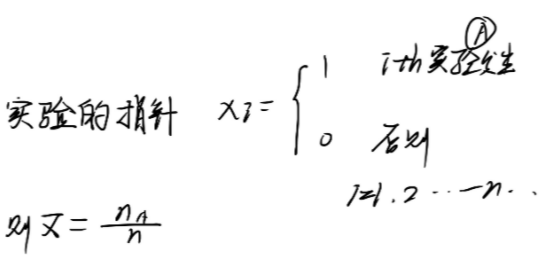 实验的指针 xi = { 1 i-th实验Ⓐ发生
0 否则
i=1.2 ····n··
则 x̄ = nA/n